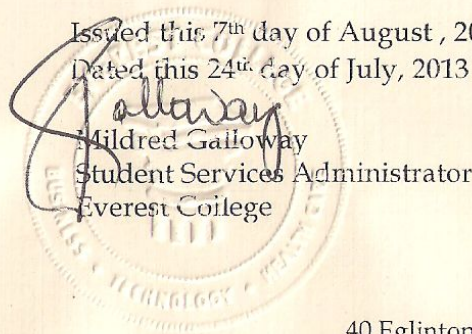 Issued this 7th day of August , 20
Dated this 24th day of July, 2013
Galloway
Mildred Galloway
Student Services Administrator
Everest College
BUSINESS • TECHNOLOGY • HEALTH CARE
40 Eglinton